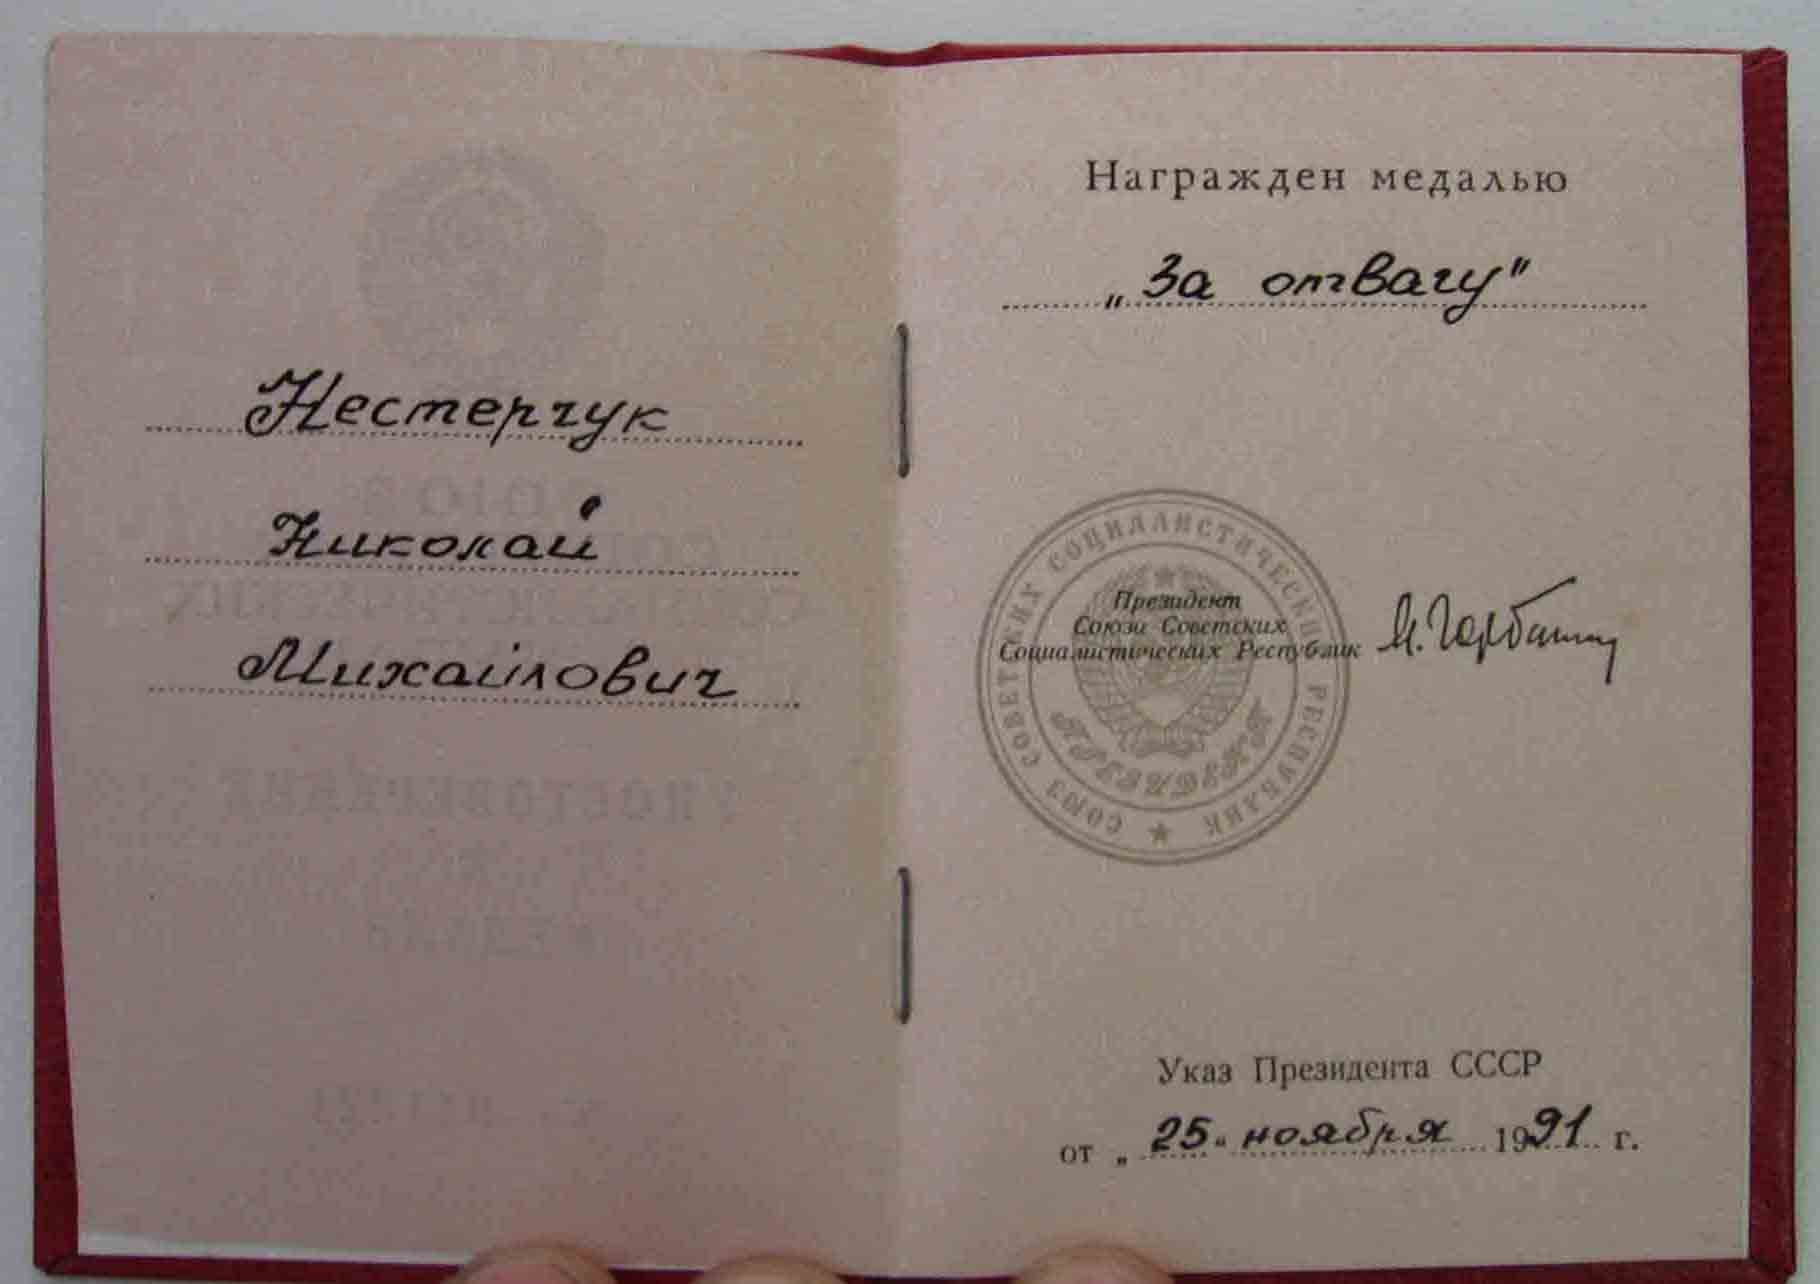 Нестерчук
Николай
Михайлович
Награжден медалью
„За отвагу"
СОЮЗ СОВЕТСКИХ СОЦИАЛИСТИЧЕСКИХ РЕСПУБЛИК
Президент
Союза Советских
Социалистических Республик
М. Горбачев
Указ Президента СССР
от „25" ноября 1991 г.